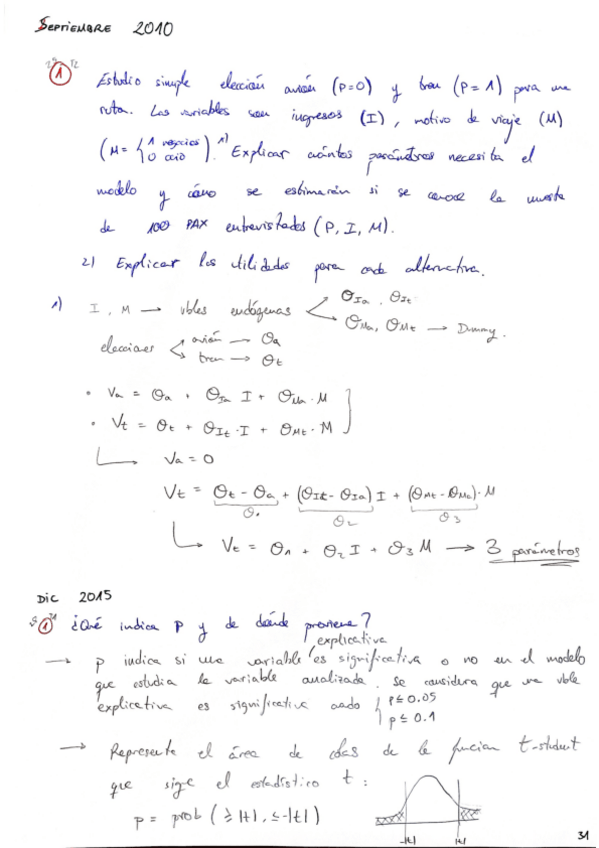 SEPTIEMBRE 2010
1 Estudio simple elección avión (P=0) y tren (P=1) para una
ruta. Las variables son ingresos (I), motivo de viaje (M)
(M = { 1 negocios 0 ocio ). 1) Explicar cuántos parámetros necesita el
modelo y cómo se estimarán si se conoce la muestra
de 1000 PAX entrevistados (P, I, M).
2) Explicar las utilidades para cada alternativa.
1) I, M → vbles endógenas < θIa, θIt
θMa, θMt → Dummy.
elecciones < avión → θa
tren → θt
• Va = θa + θIa I + θMa · M
• Vt = θt + θIt · I + θMt · M
Va = 0
Vt = θt - θa + (θIt - θIa) I + (θMt - θMa) · M
θ1 θ2 θ3
Vt = θ1 + θ2 I + θ3 M → 3 parámetros
DIC 2015
1 ¿Qué indica P y de dónde proviene?
explicativa
→ p indica si una variable es significativa o no en el modelo
que estudia la variable analizada. Se considera que una vble
explicativa es significativa cuando { p ≤ 0.05
p ≤ 0.1
→ Representa el área de colas de la función t-student
que sigue el estadístico t:
p = prob ( ≥ |t|, ≤ -|t| )
-|t| |t|
31